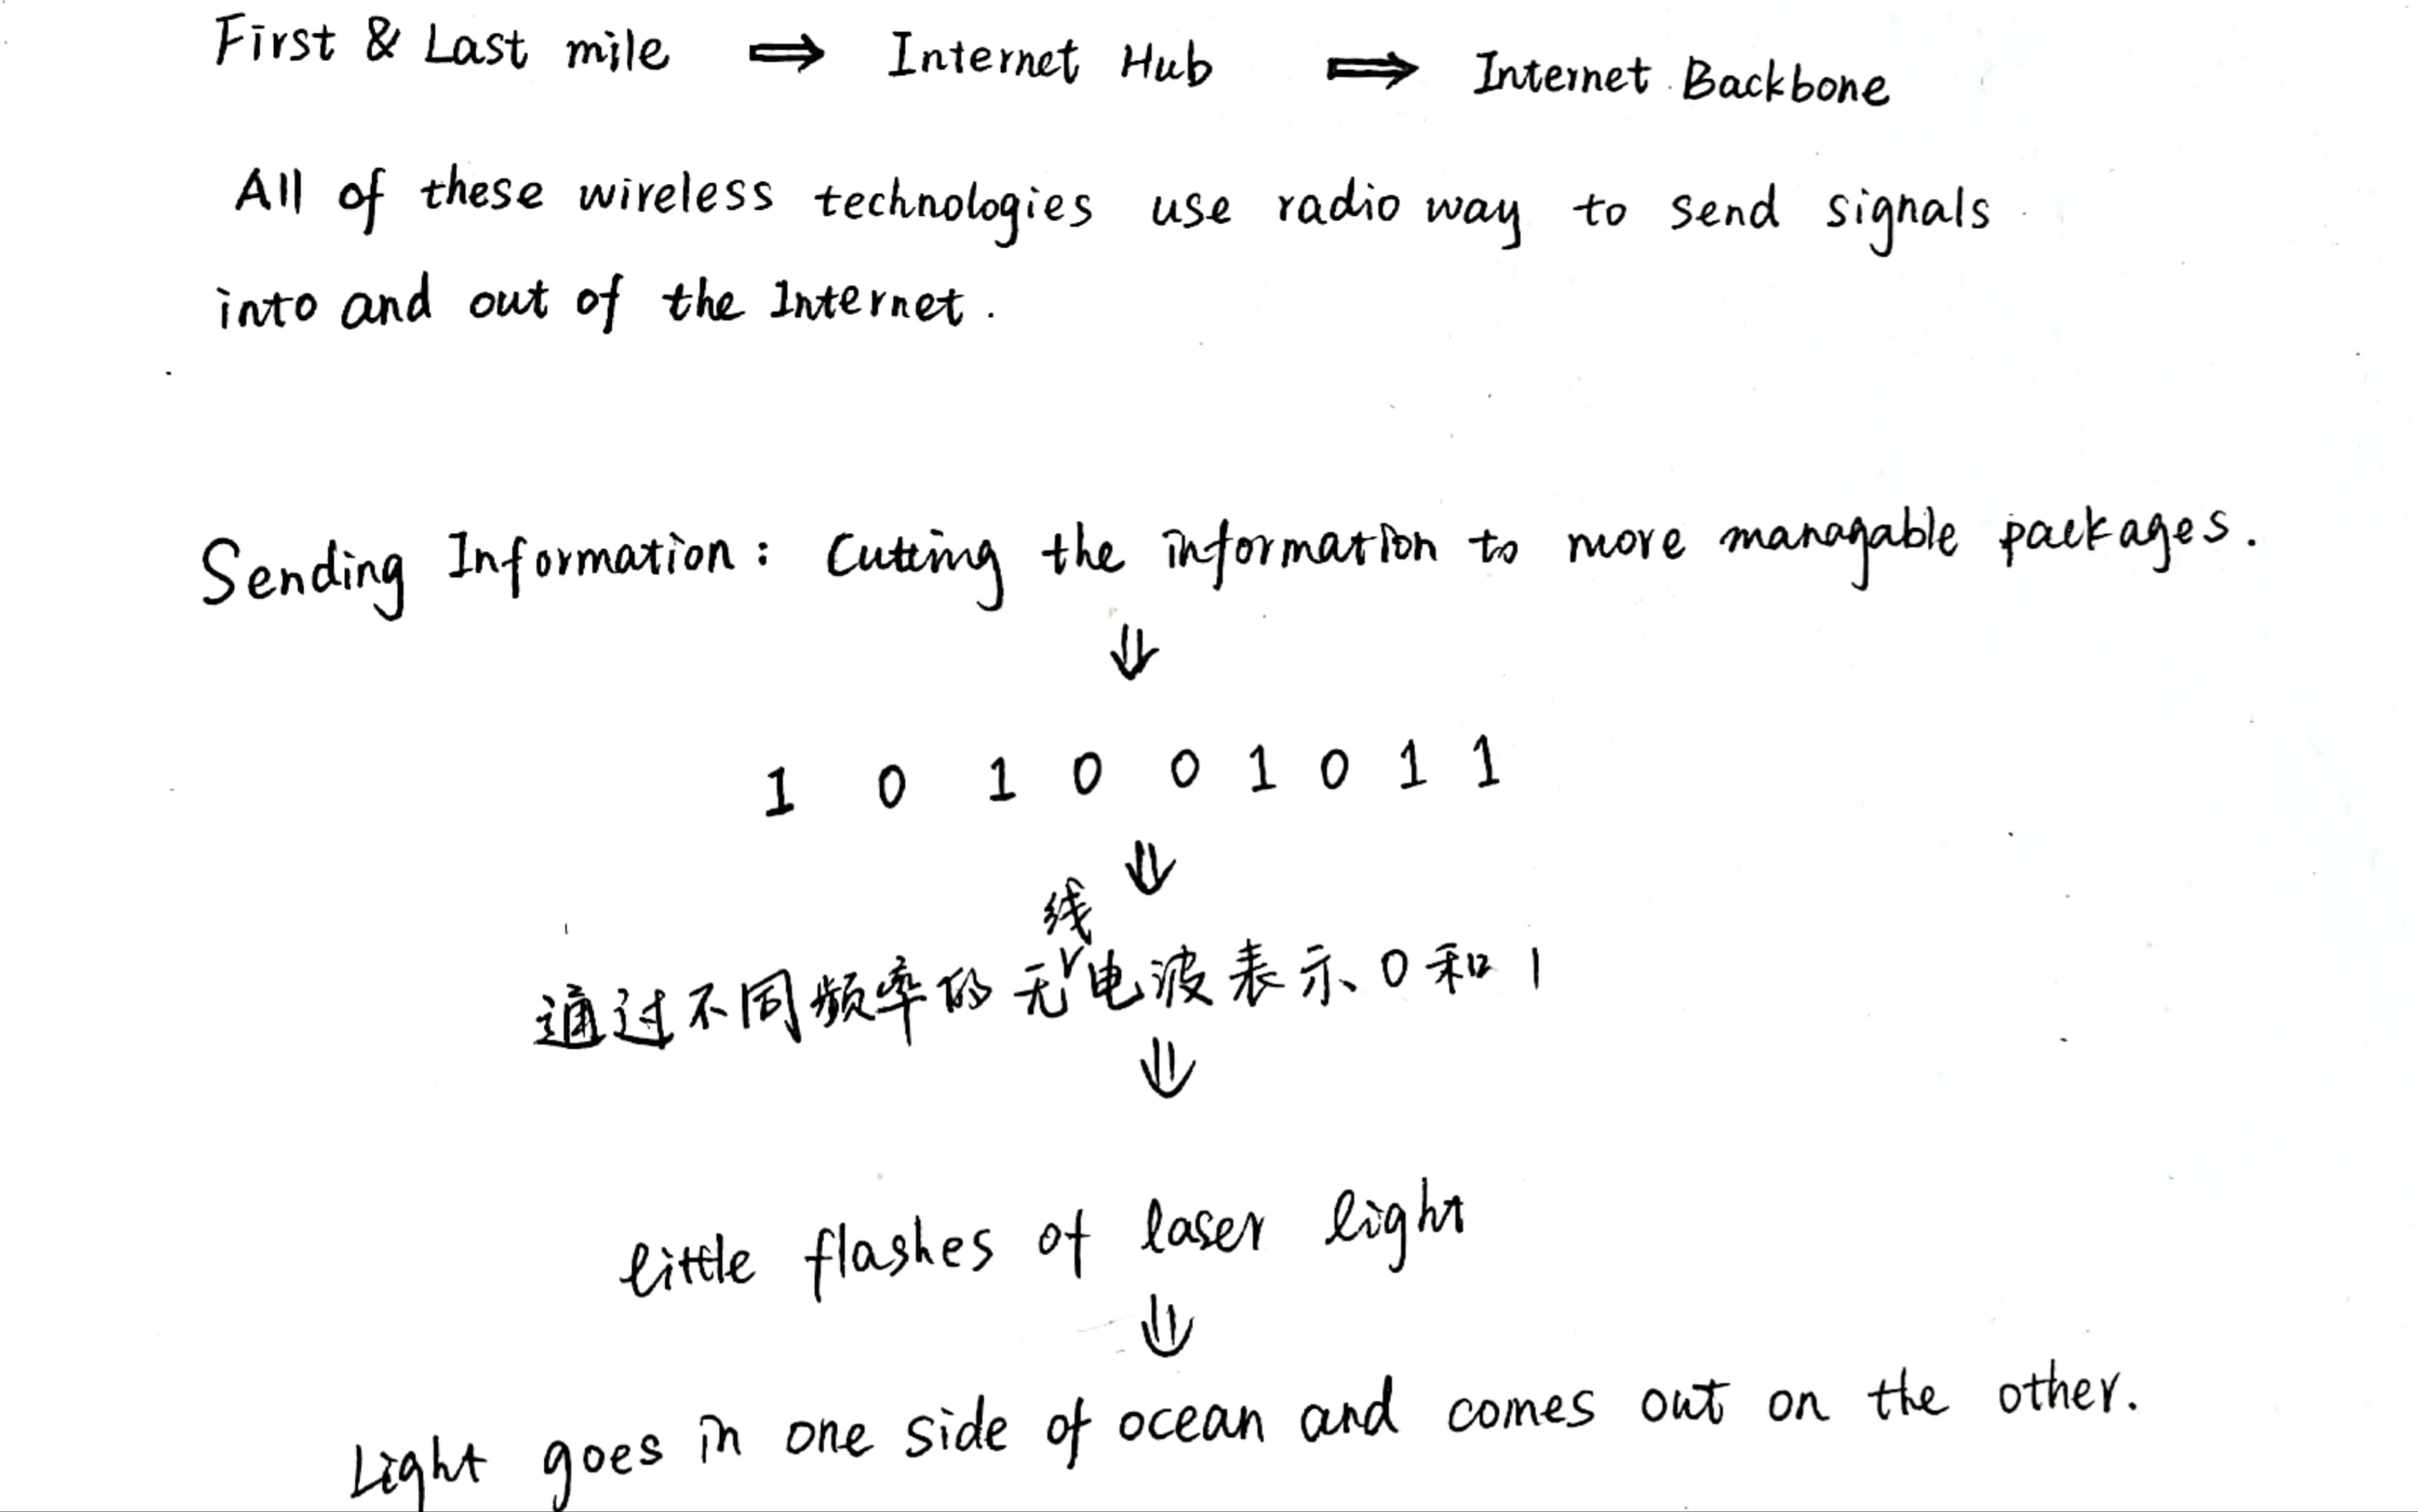 First & Last mile ⇒ Internet Hub ⇒ Internet Backbone
All of these wireless technologies use radio way to send signals
into and out of the Internet.
Sending Information: Cutting the information to more managable packages.
⇓
1 0 1 0 0 1 0 1 1
⇓
通过不同频率的无线电波表示0和1
⇓
little flashes of laser light
⇓
Light goes in one side of ocean and comes out on the other.